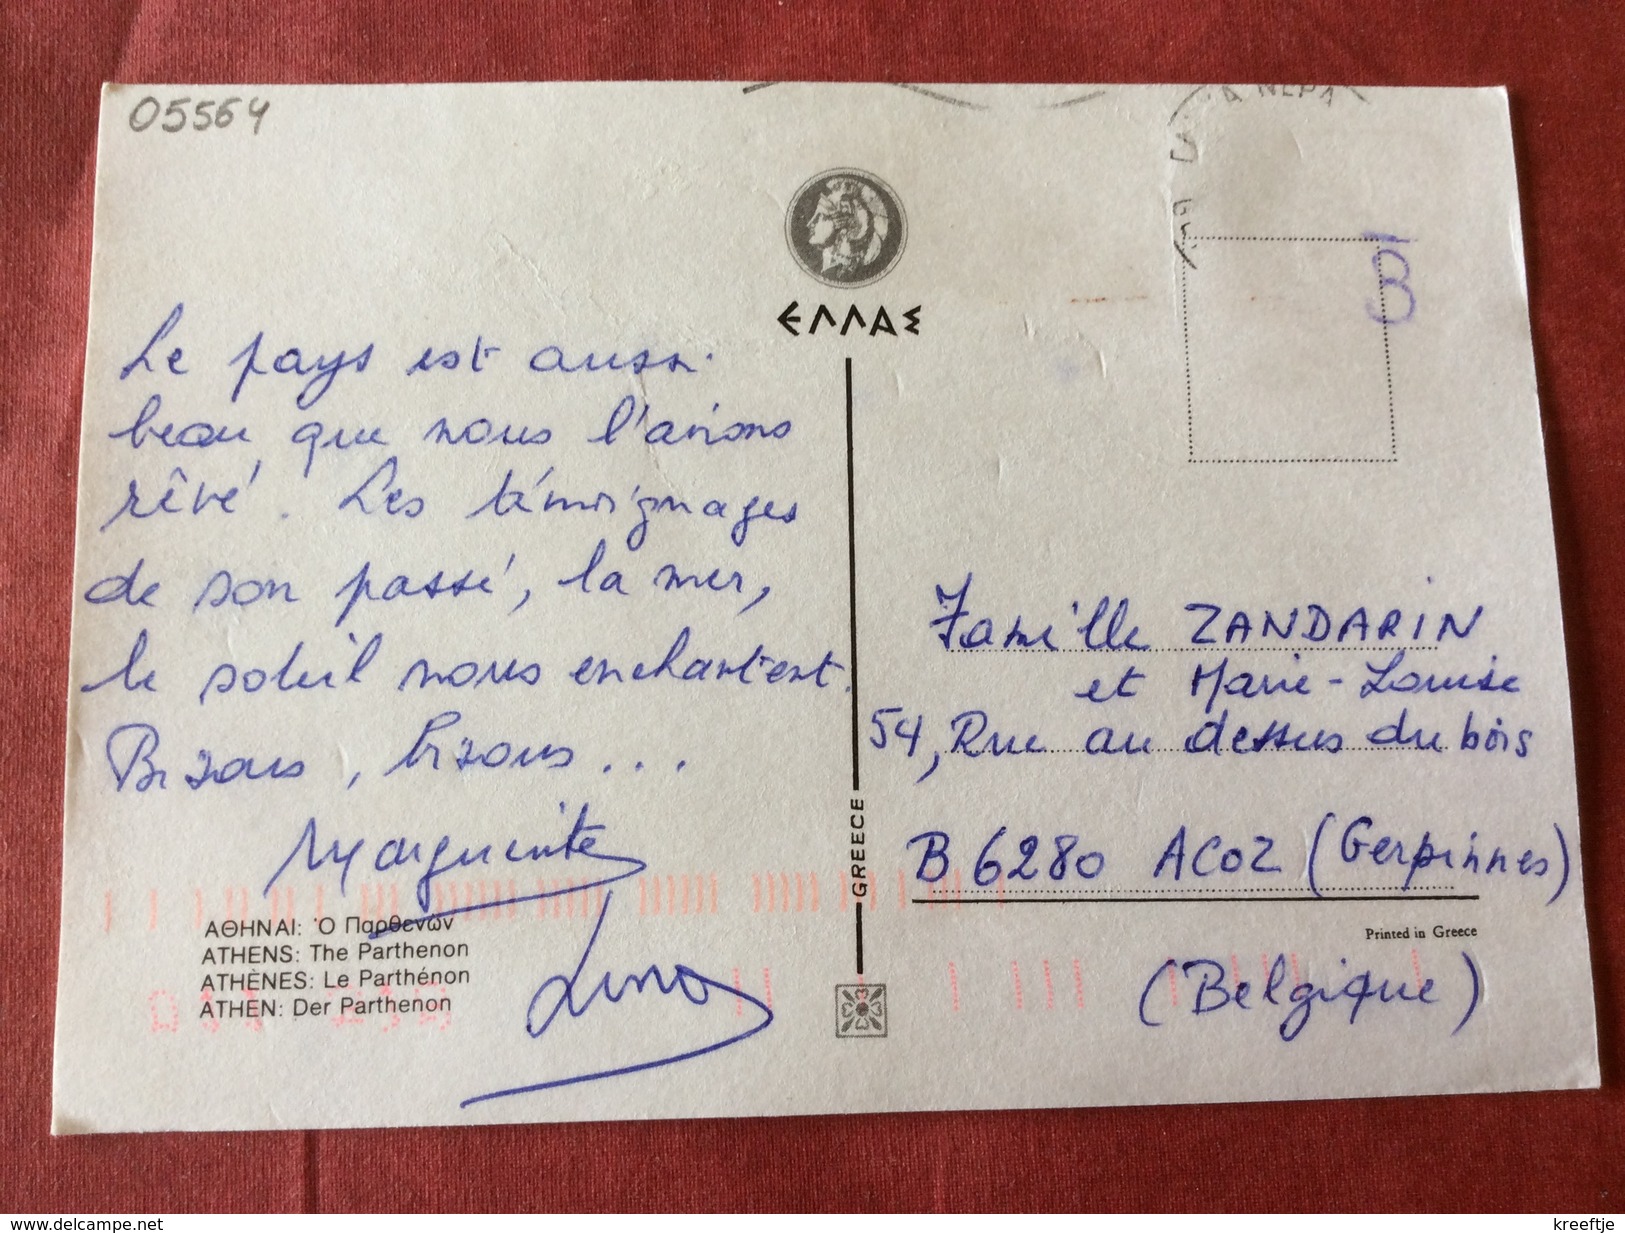 05564
ΕΛΛΑΣ
Le pays est aussi
beau que nous l'avions
rêvé. Les témoignages
de son passé, la mer,
le soleil nous enchantent.
Bisous, bisous...
Marguerite
Lina
ΑΘΗΝΑΙ: Ὁ Παρθενών
ATHENS: The Parthenon
ATHÈNES: Le Parthénon
ATHEN: Der Parthenon
GREECE
B
Famille ZANDARIN
et Marie-Louise
54, Rue au dessus du bois
B 6280 ACOZ (Gerpinnes)
Printed in Greece
(Belgique)
www.delcampe.net
kreeftje